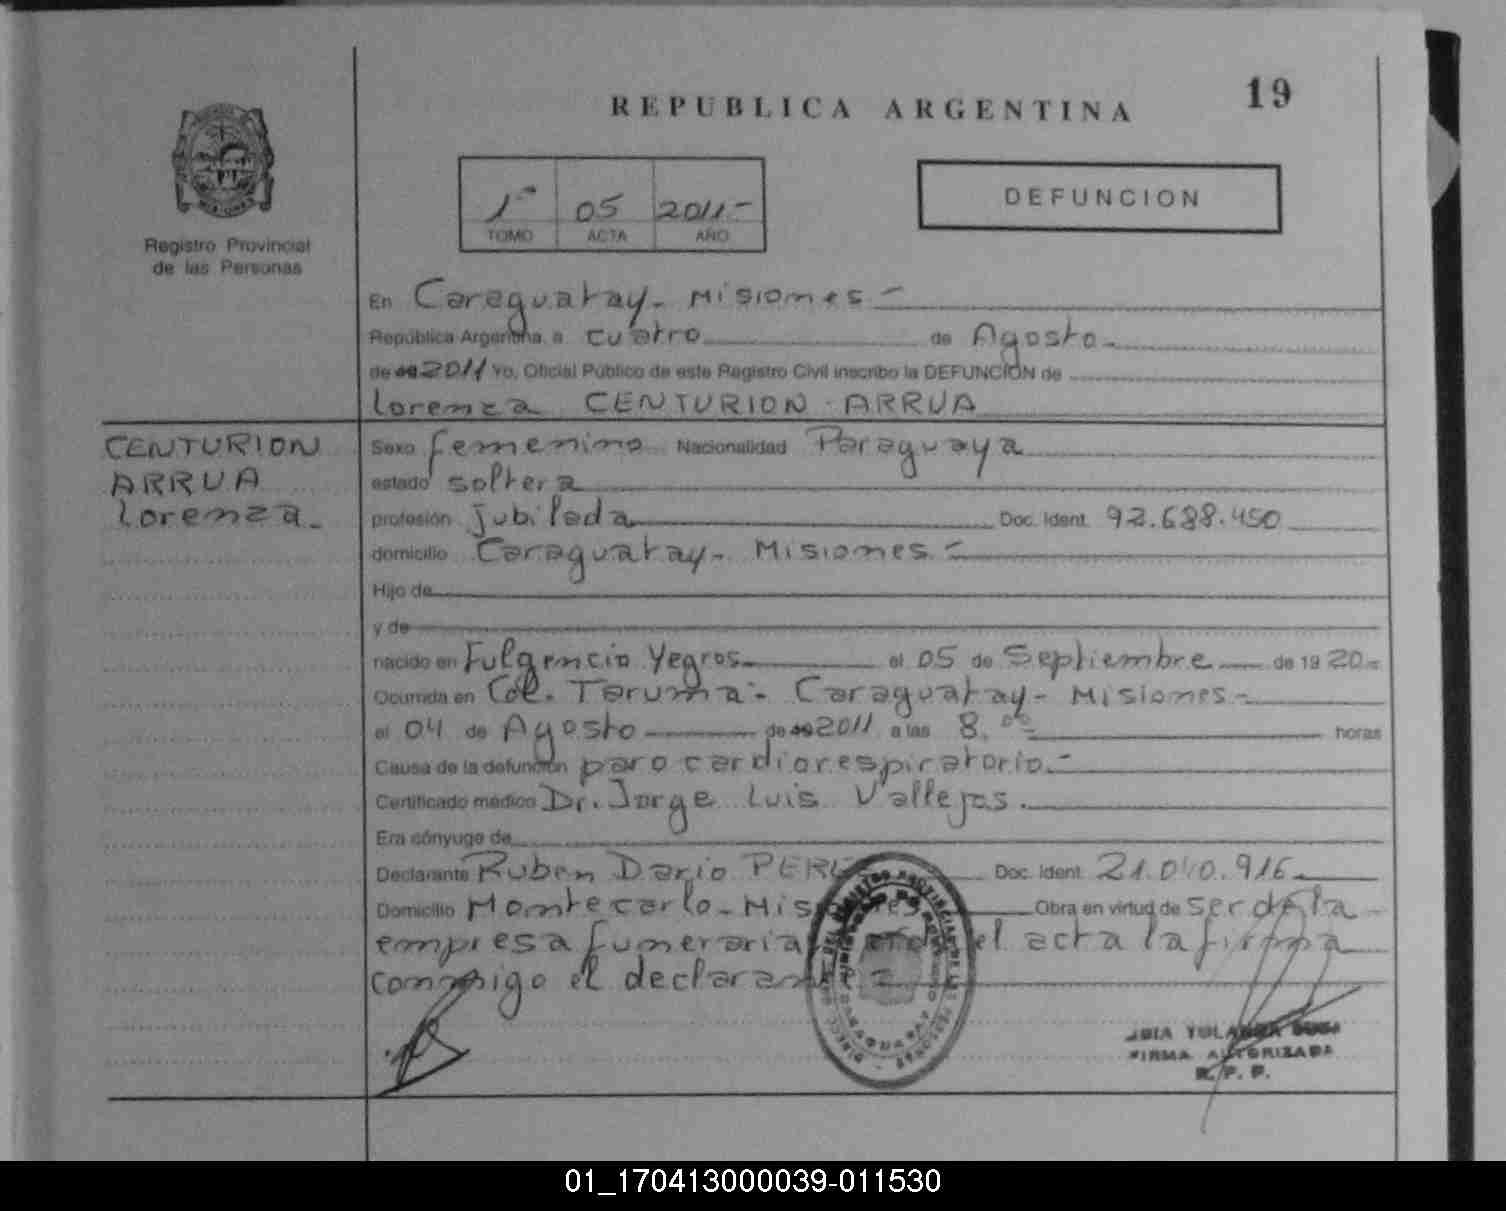 REPUBLICA ARGENTINA
19
Registro Provincial
de las Personas
1º 05 2011-
TOMO ACTA AÑO
DEFUNCION
En Caraguatay - Misiones -
República Argentina, a cuatro de Agosto -
de 19 2011 Yo, Oficial Público de este Registro Civil inscribo la DEFUNCION de
Lorenza CENTURION ARRUA
CENTURION
ARRUA
Lorenza -
Sexo femenino Nacionalidad Paraguaya
estado soltera
profesión jubilada Doc. Ident. 92.688.450
domicilio Caraguatay - Misiones -
Hijo de
y de
nacido en Fulgencio Yegros el 05 de Septiembre de 19 20 -
Ocurrida en Col. Taruma - Caraguatay - Misiones -
el 04 de Agosto de 19 2011 a las 8.00 horas
Causa de la defunción paro cardiorespiratorio. -
Certificado médico Dr. Jorge Luis Vallejos.
Era cónyuge de
Declarante Ruben Dario Doc. Ident. 21.040.916
Domicilio Montecarlo - Misiones Obra en virtud de ser de la
empresa funeraria el acta la firma
conmigo el declarante
YOLANDA
FIRMA AUTORIZADA
R. P. P.
01_170413000039-011530